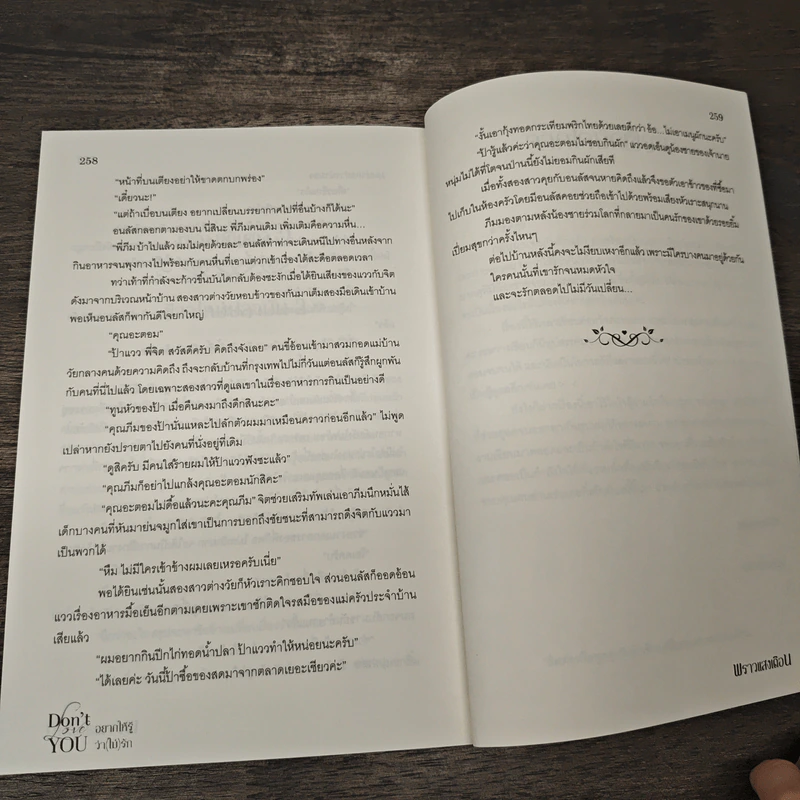 258
“หน้าที่บนเตียงอย่าให้ขาดตกบกพร่อง”
“เดี๋ยวนะ!”
“แต่ถ้าเบื่อบนเตียง อยากเปลี่ยนบรรยากาศไปที่อื่นบ้างก็ได้นะ”
อนลัสกลอกตามองบน นี่สินะ พี่ภีมคนเดิม เพิ่มเติมคือความหื่น...
“พี่ภีม บ้าไปแล้ว ผมไม่คุยด้วยละ” อนลัสทำท่าจะเดินหนีไปทางอื่นหลังจาก
กินอาหารจนพุงกางไปพร้อมกับคนหื่นที่เอาแต่วกเข้าเรื่องใต้สะดือตลอดเวลา
ทว่าเท้าที่กำลังจะก้าวขึ้นบันไดกลับต้องชะงักเมื่อได้ยินเสียงของแววกับจิต
ดังมาจากบริเวณหน้าบ้าน สองสาวต่างวัยหอบข้าวของกันมาเต็มสองมือเดินเข้าบ้าน
พอเห็นอนลัสก็พากันดีใจยกใหญ่
“คุณอะตอม”
“ป้าแวว พี่จิต สวัสดีครับ คิดถึงจังเลย” คนขี้อ้อนเข้ามาสวมกอดแม่บ้าน
วัยกลางคนด้วยความคิดถึง ถึงจะกลับบ้านที่กรุงเทพไปไม่กี่วันแต่อนลัสก็รู้สึกผูกพัน
กับคนที่นี่ไปแล้ว โดยเฉพาะสองสาวที่ดูแลเขาในเรื่องอาหารการกินเป็นอย่างดี
“ทูนหัวของป้า เมื่อคืนคงมาถึงดึกสินะคะ”
“คุณภีมของป้านั่นแหละไปลักตัวผมมาเหมือนคราวก่อนอีกแล้ว” ไม่พูด
เปล่าหากยังปรายตาไปยังคนที่นั่งอยู่ที่เดิม
“ดูสิครับ มีคนใส่ร้ายผมให้ป้าแววฟังซะแล้ว”
“คุณภีมก็อย่าไปแกล้งคุณอะตอมนักสิคะ”
“คุณอะตอมไม่ดื้อแล้วนะคะคุณภีม” จิตช่วยเสริมทัพเล่นเอาภีมนึกหมั่นไส้
เด็กบางคนที่หันมาย่นจมูกใส่เขาเป็นการบอกถึงชัยชนะที่สามารถดึงจิตกับแววมา
เป็นพวกได้
“หืม ไม่มีใครเข้าข้างผมเลยเหรอครับเนี่ย”
พอได้ยินเช่นนั้นสองสาวต่างวัยก็หัวเราะคิกชอบใจ ส่วนอนลัสก็ออดอ้อน
แววเรื่องอาหารมื้อเย็นอีกตามเคยเพราะเขาชักติดใจรสมือของแม่ครัวประจำบ้าน
เสียแล้ว
“ผมอยากกินปีกไก่ทอดน้ำปลา ป้าแววทำให้หน่อยนะครับ”
“ได้เลยค่ะ วันนี้ป้าซื้อของสดมาจากตลาดเยอะเชียวค่ะ”
Don't
love
YOU
อยากให้รู้
ว่า(ไม่)รัก
259
“งั้นเอากุ้งทอดกระเทียมพริกไทยด้วยเลยดีกว่า อ้อ...ไม่เอาเมนูผักนะครับ”
“ป้ารู้แล้วค่ะว่าคุณอะตอมไม่ชอบกินผัก” แววอดเอ็นดูน้องชายของเจ้านาย
หนุ่มไม่ได้ที่โตจนป่านนี้ยังไม่ยอมกินผักเสียที
เมื่อทั้งสองสาวคุยกับอนลัสจนหายคิดถึงแล้วจึงขอตัวเอาข้าวของที่ซื้อมา
ไปเก็บในห้องครัวโดยมีอนลัสคอยช่วยถือเข้าไปด้วยพร้อมเสียงหัวเราะสนุกนาน
ภีมมองตามหลังน้องชายร่วมโลกที่กลายมาเป็นคนรักของเขาด้วยรอยยิ้ม
เปี่ยมสุขกว่าครั้งไหนๆ
ต่อไปบ้านหลังนี้คงจะไม่เงียบเหงาอีกแล้ว เพราะมีใครบางคนมาอยู่ด้วยกัน
ใครคนนั้นที่เขารักจนหมดหัวใจ
และจะรักตลอดไปไม่มีวันเปลี่ยน...
พราวแสงเดือน